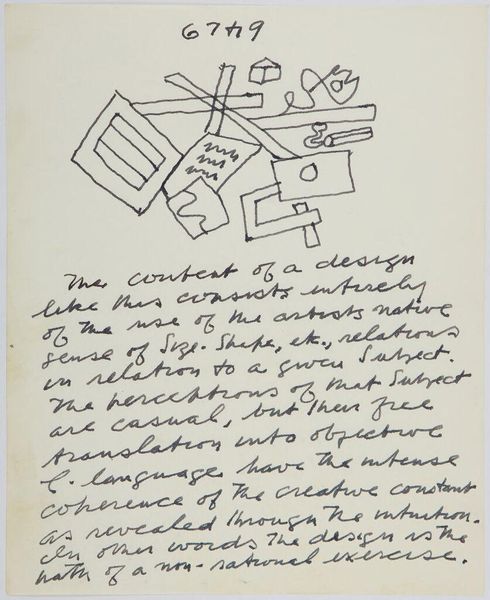 6749
The content of a design
like this consists entirely
of the use of the artists native
sense of Size. Shape, etc., relations
in relation to a given Subject.
The perceptions of that Subject
are casual, but their free
translation into objective
C. language have the intense
coherence of the creative constant
as revealed through the intuition.
In other words the design is the
path of a non-rational exercise.